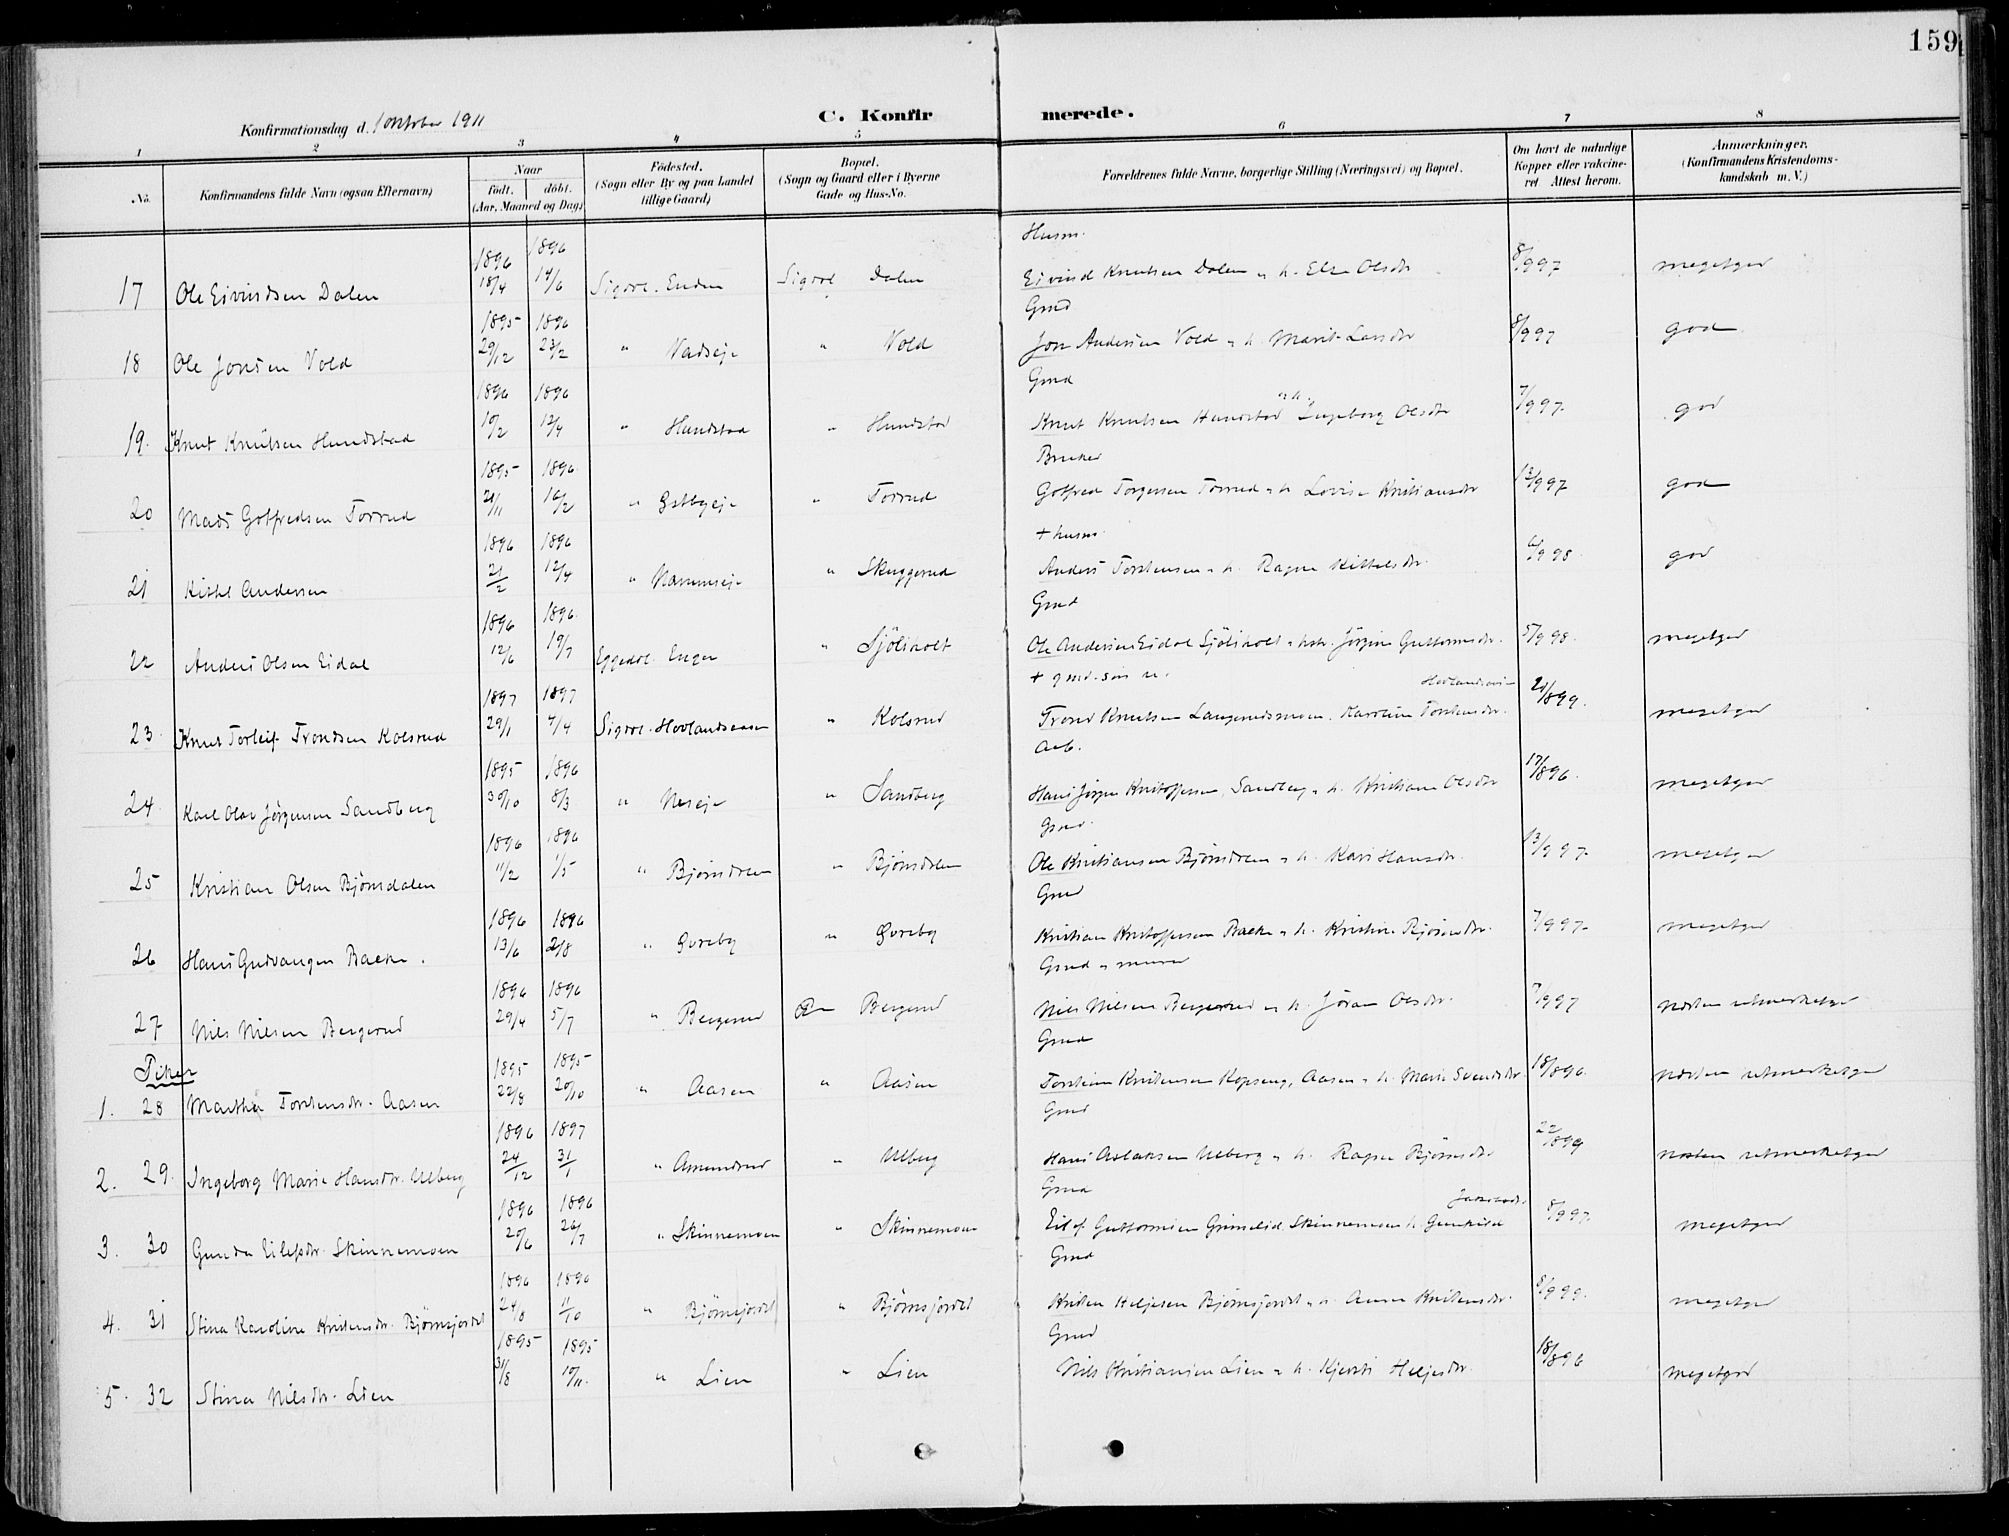 159
Konfirmationsdag d. 1 oktober 1911
C. Konfirmerede.
1 2 3 4 5 6 7 8
No. Konfirmandens fulde Navn (ogsaa Efternavn) Naar født. døbt. (Aar, Maaned og Dag) Fødested. (Sogn eller By og paa Landet tillige Gaard) Bopæl. (Sogn og Gaard eller i Byerne Gade og Hus-No. Forældrenes fulde Navne, borgerlige Stilling (Næringsvei) og Bopæl. Om havt de naturlige Kopper eller vakcineret Attest herom. Anmærkninger. (Konfirmandens Kristendomskundskab m. V.)
Husm.
17 Ole Eivindsen Dalen 1896 18/4 1896 14/6 Sigdal. Enden Sigdal Dalen Eivind Knutsen Dalen o. h. Else Olsdr 8/9 97 megetgod
Grnd
18 Ole Jonsen Vold 1895 29/12 1896 23/2 " Vadseje " Vold Jon Andersen Vold o. h. Marit Larsdr 8/9 97 god
Grnd
19. Knut Knutsen Hundstad 1896 10/2 1896 12/4 " Hundstad " Hundstad Knut Knutsen Hundstad o. h. Ingeborg Olsdr 7/9 97. god
Bruker
20 Mads Gotfredsen Torrud 1895 21/11 1896 16/2 " Torrud Gotfred Torgersen Torrud o. h Lovise Kristiansdr 13/9 97 god
+ husm.
21 Kittel Andersen 1896 21/2 1896 12/4 " " Skuggerud Anders Torstensen o. h. Ragne Kittelsdr. 6/9 98. god
Grnd
22 Anders Olsen Eidal 1896 12/6 1896. 19/7 Eggedal. Enger " Sjøliholt Ole Andersen Eidal Sjøliholt o. hstr. Jørgine Guttormsdr. 5/9 98. megetgod
+ gmd. søn
23. Knut Torleif Trondsen Kolsrud 1897 29/1 1897 4/4 Sigdal. Hovlandsaasen " Kolsrud Trond Knutsen Langerudsmoen. Karoline Torstensdr. Hovlandsaasen 21/8 99. megetgod
Arb.
24. Karl Olav Jørgensen Sandberg 1895 30/10 1896 8/3 " Neseje " Sandberg Hans Jørgen Kristoffersen, Sandberg o. h. Kristiane Olsdr 17/8 96. megetgod
Grnd.
25 Kristian Olsen Bjørnsdalen 1896 11/2 1896 1/5 " Bjørnsdalen " Bjørnsdalen Ole Kristiansen Bjørnsdalen o. h. Kari Hansdr. 13/9 97. megetgod
Grnd
26 Hans Gudvangen Bakke. 1896 13/6 1896 2/8 " Øvreby " Øvreby Kristian Kristoffersen Bakke o. h. Kristine Bjørnsdr. 7/9 97. megetgod
Grnd o murer
27 Nils Nilsen Bergerud 1896 29/4 1896 5/7 " Bergerud Bergerud Nils Nilsen Bergerud o. h. Jøran Olsdr. 7/9 97 næsten utmerketgod
Grnd
Piker
1. 28 Marthe Torstensdr. Aasen 1895 22/8 1895 20/10 " Aasen " Aasen Torstein Kristensen Kopseng, Aasen o. h. Marie Svendsdr. 18/8 96. næsten utmerketgod
Grnd
2. 29. Ingeborg Marie Hansdr. Ulberg 1896 24/12 1897 31/1 " Amundrud " Ulberg Hans Aslaksen Ulberg o. h. Ragne Bjørnsdr 22/8 99 næsten utmerketgod
Grnd
3. 30 Gunda Eilefsdr. Skinnemoen 1896 20/6 1896 26/7 " Skinnemoen " Skinnemoen Eilef Guttormsen Grimelid, Skinnemoen h. Gunhild 8/9 97. megetgod
Grnd
4. 31 Stina Karoline Kristensdr. Bjørnsjordet 1896 24/8 1896 11/10 " Bjørnsjordet " Bjørnsjordet Kristen Heljesen Bjørnsjordet o. h. Anne Kristensdr. 8/9 99. megetgod
Grnd
5. 32 Stina Nilsdr. Lien 1895 31/8 1895 10/11. " Lien " Lien Nils Kristiansen Lien o. h. Kjersti Heljesdr. 18/8 96 megetgod